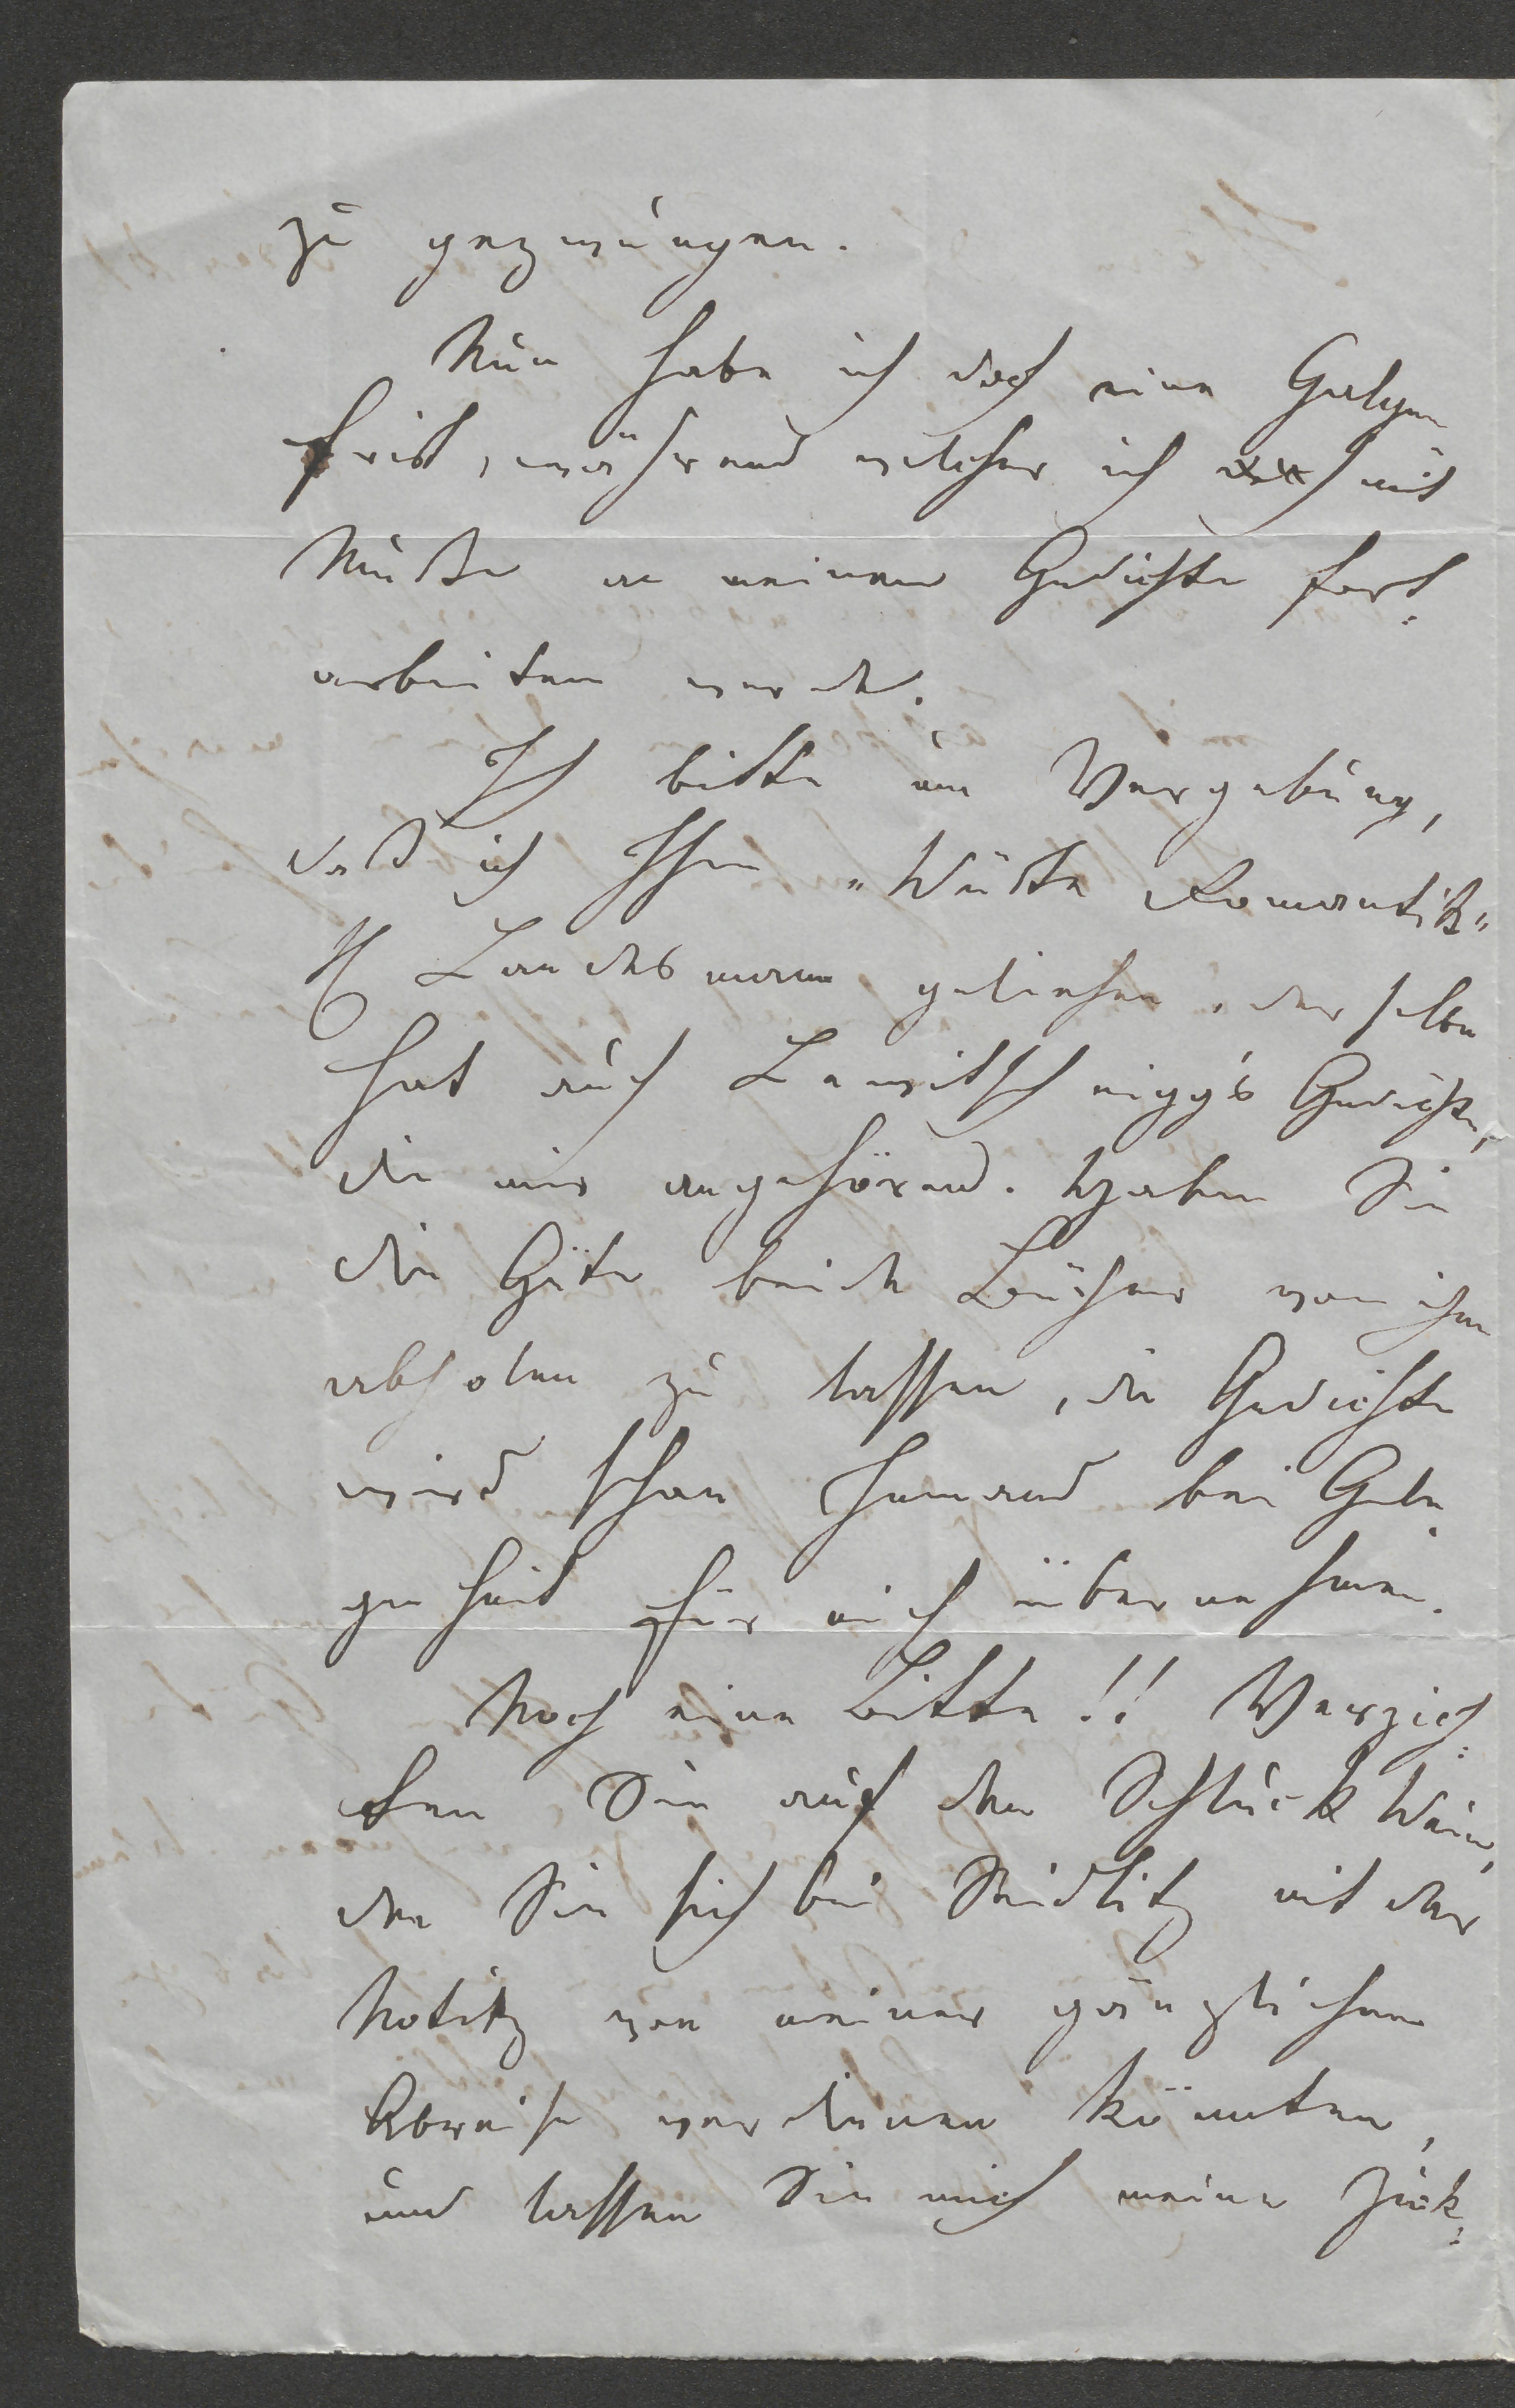 zu gezwungen.
Nun habe ich doch eine Galgen
frist, während welcher ich mit
Muße an meinem Gedichte fort:
arbeiten werde.
Ich bitte um Vergebung,
daß ich Ihre „Wüste Romantik"
H Landesmann geliehen, derselbe
hat auch Levitschniggs Gedichte,
die mir angehörend. Haben Sie
die Güte beide Bücher von ihm
abholen zu lassen, die Gedichte
wird schon Jemand bei Gele:
genheit für mich übernehmen.
Noch eine Bitte!! Verzich:
ten Sie auf den Schluck Wein,
den Sie sich bei Seidlitz mit der
Notitz von meiner gänzlichen
Abreise verdienen könnten,
und lassen Sie mich meine Zück: